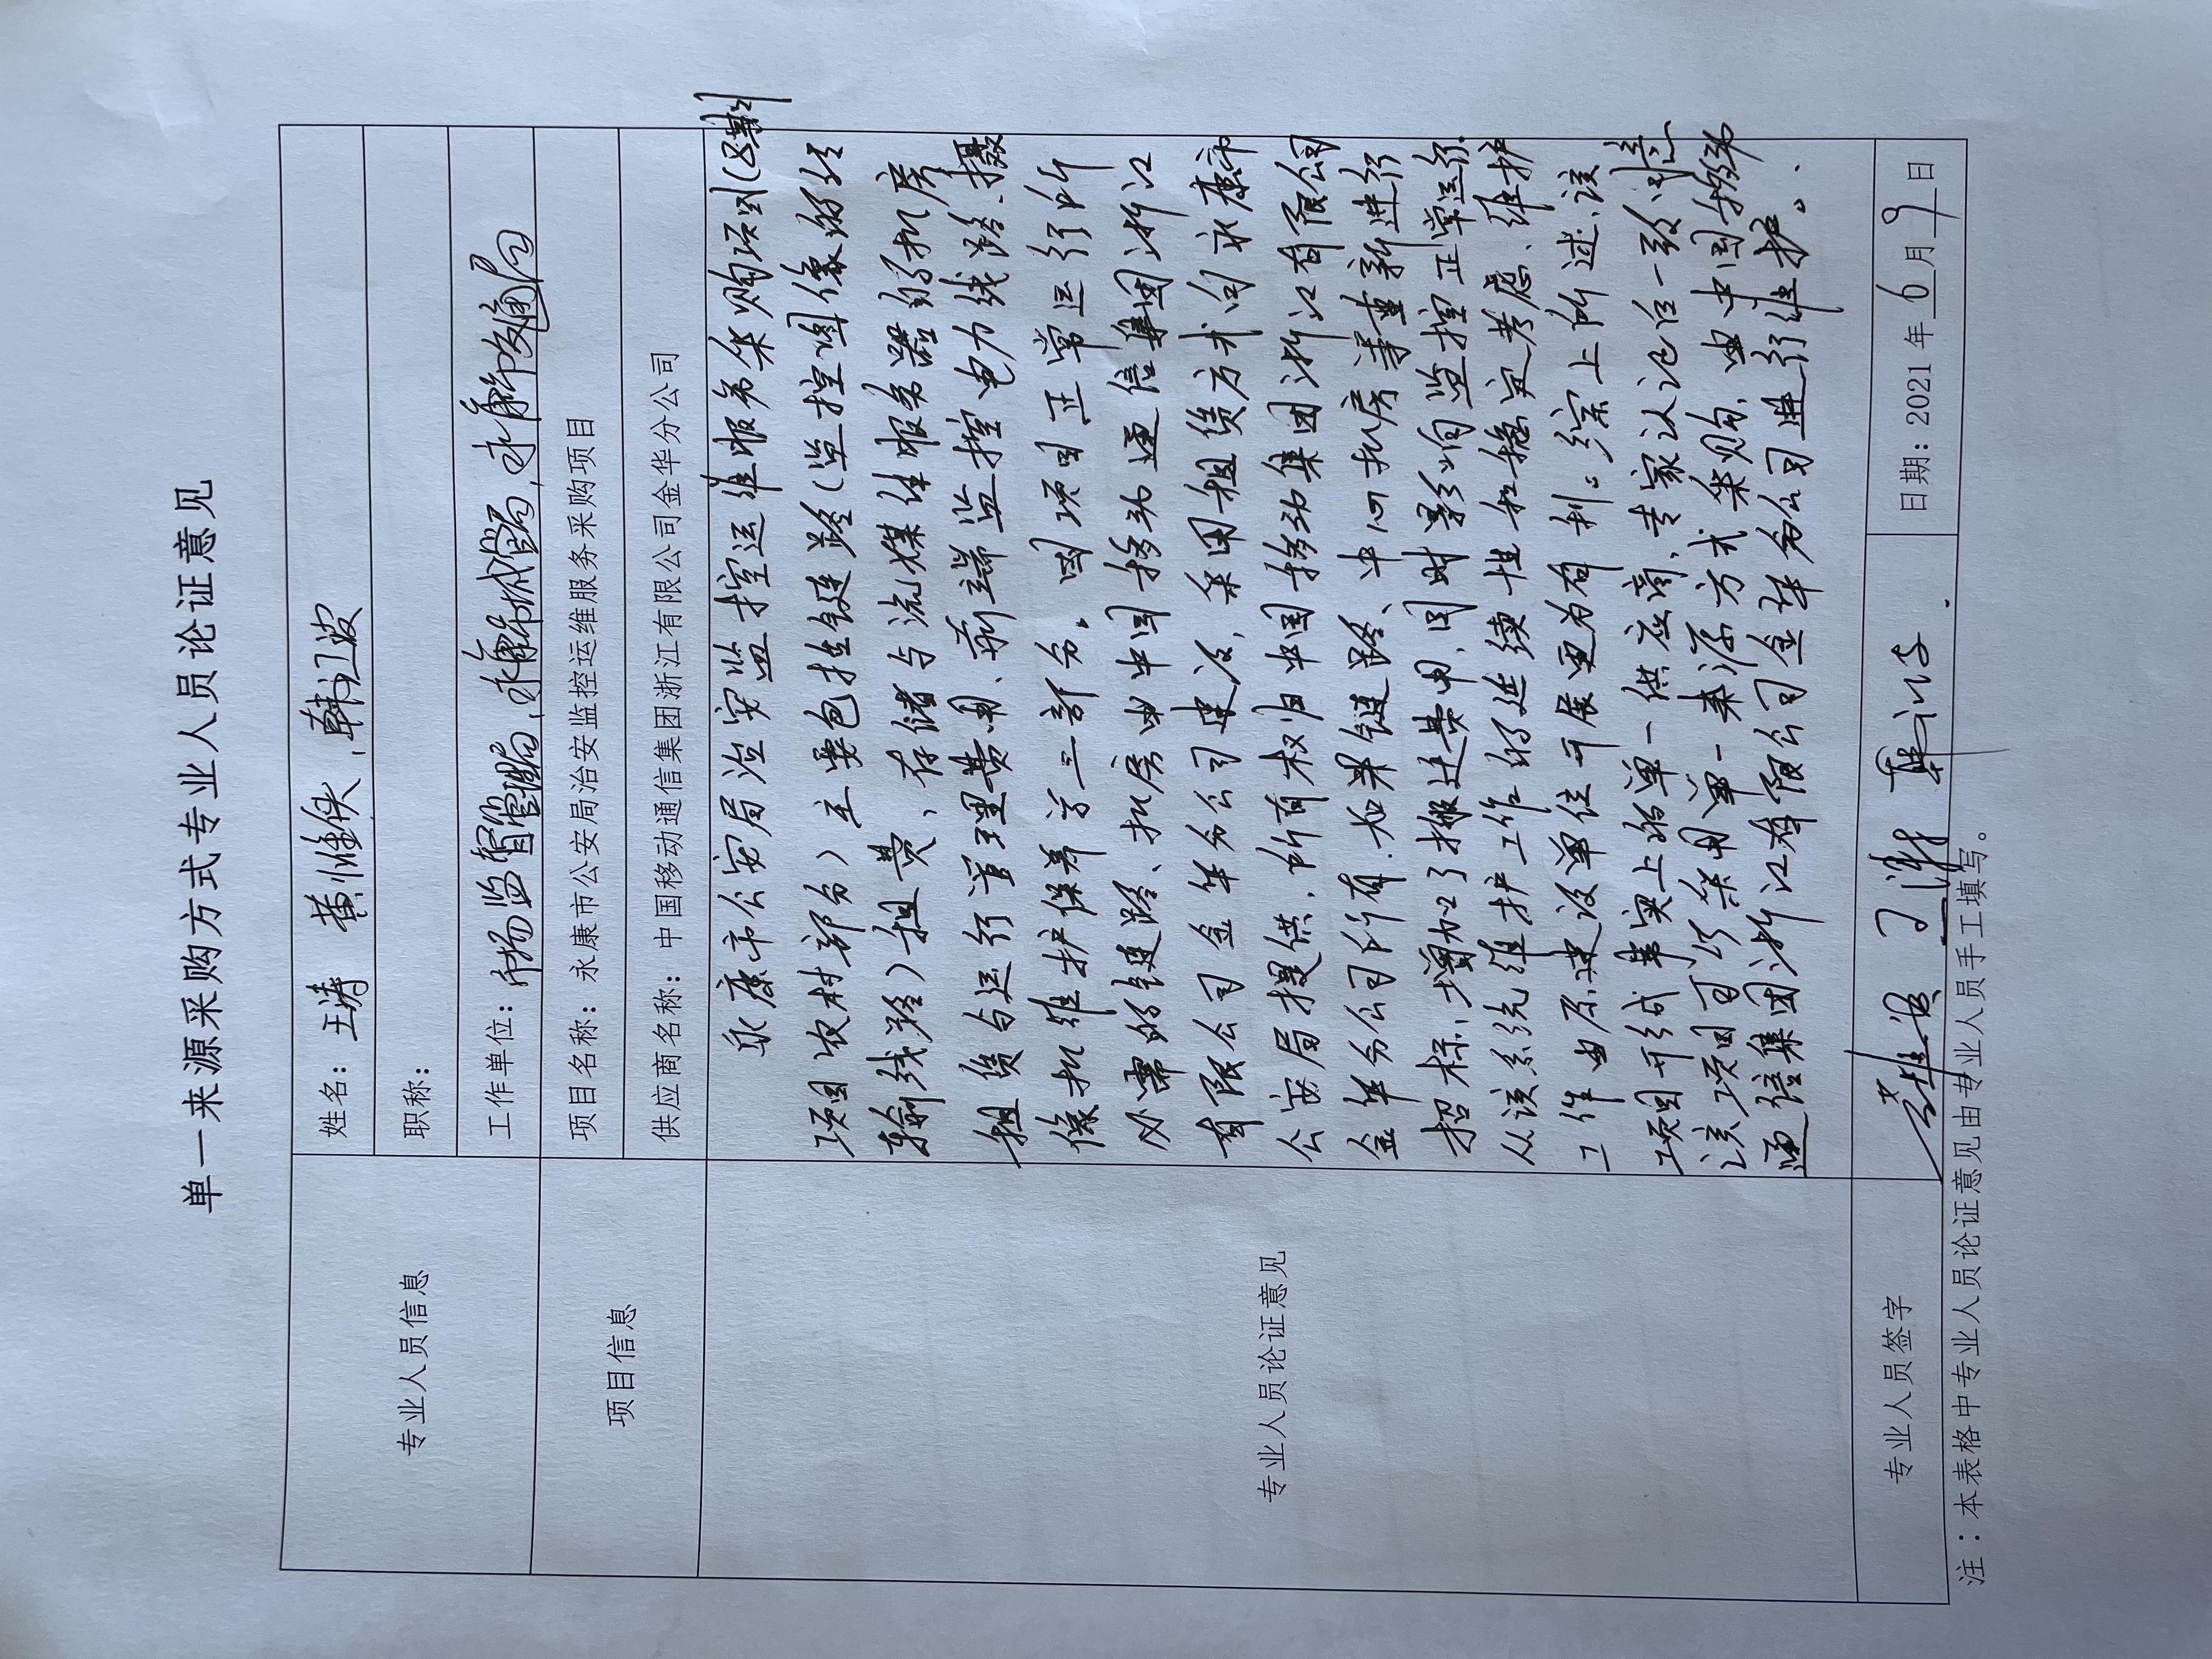 单一来源采购方式专业人员论证意见
专业人员信息
姓名：王涛 黄维铁、韩江波
职称：
工作单位：市场监督管理局、永康市城管局、永康市交通局
项目信息
项目名称：永康市公安局治安监控运维服务采购项目
供应商名称：中国移动通信集团浙江有限公司金华分公司
专业人员论证意见
永康市公安局治安监控运维服务采购项目（8期
项目农村部分）主要包括链路（监控图像的传
输线路）租费、存储与流媒体服务器的机房
租赁与运行管理费用、前端监控电力线路、摄
像机维护保养等三部分。因项目正常运行所
必需的链路、机房由中国移动通信集团浙江
有限公司金华分公司建设，采用租赁方式向永康市
公安局提供，所有权归中国移动集团浙江有限公司
金华分公司所有。如果链路、中心机房等重新进行
招标，增加了搬迁费用，同时影响监控正常运行。
从该系统维护工作的延续性和稳定考虑，维护
工作由原建设单位开展更为有利。综上所述，该
项目形成事实上的单一供应商，专家认论后一致同意
该项目可以采用单一来源方式采购，由中国移动
通信集团浙江有限公司金华分公司进行维护。
专业人员签字
王涛
日期：2021年6月9日
注：本表格中专业人员论证意见由专业人员手工填写。